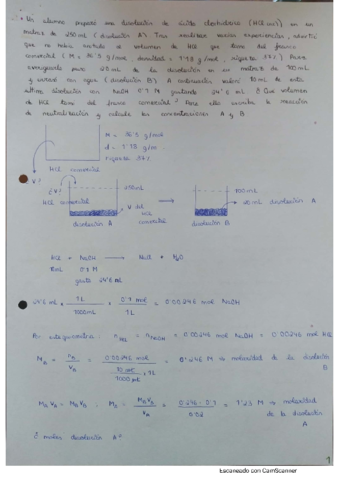 Un alumno preparó una disolución de ácido clorhídrico (HCl(ac)) en un
matraz de 250 ml (disolución A). Tras realizar varias experiencias, advirtió
que no había anotado el volumen de HCl que tomó del frasco
comercial (M = 36'5 g/mol, densidad = 1'18 g/ml, riqueza 37%). Para
averiguarlo puso 20 mL de la disolución en un matraz de 100 mL
y enrasó con agua (disolución B). A continuación valoró 10 ml de esta
última disolución con NaOH 0'1 M gastando 24'6 mL. ¿Qué volumen
de HCl tomó del frasco comercial? Para ello escriba la reacción
de neutralización y calcule las concentraciones A y B.
M = 36'5 g/mol
d = 1'18 g/
riqueza 37%
HCl comercial
V?
¿V?
HCl
comercial
250mL
V del
HCl
comercial
disolución A
100mL
disolución A
disolución B
HCl + NaOH → NaCl + H2O
10mL 0'1 M
gasta 24'6 mL
24'6 mL × 1L / 1000mL × 0'1 mol / 1L = 0'00246 mol NaOH
n HCl = n NaOH = 0'00246 mol NaOH = 0'00246 mol HCl
MB = nB / VB = 0'00246 mol / = 0'246 M → molaridad de la disolución B
MA VA = MB VB MA = MB VB / VA = 0'246 · 0'1 / 0'02 = 1'23 M → molaridad de la disolución A
¿ moles disolución A?
1
Escaneado con CamScanner